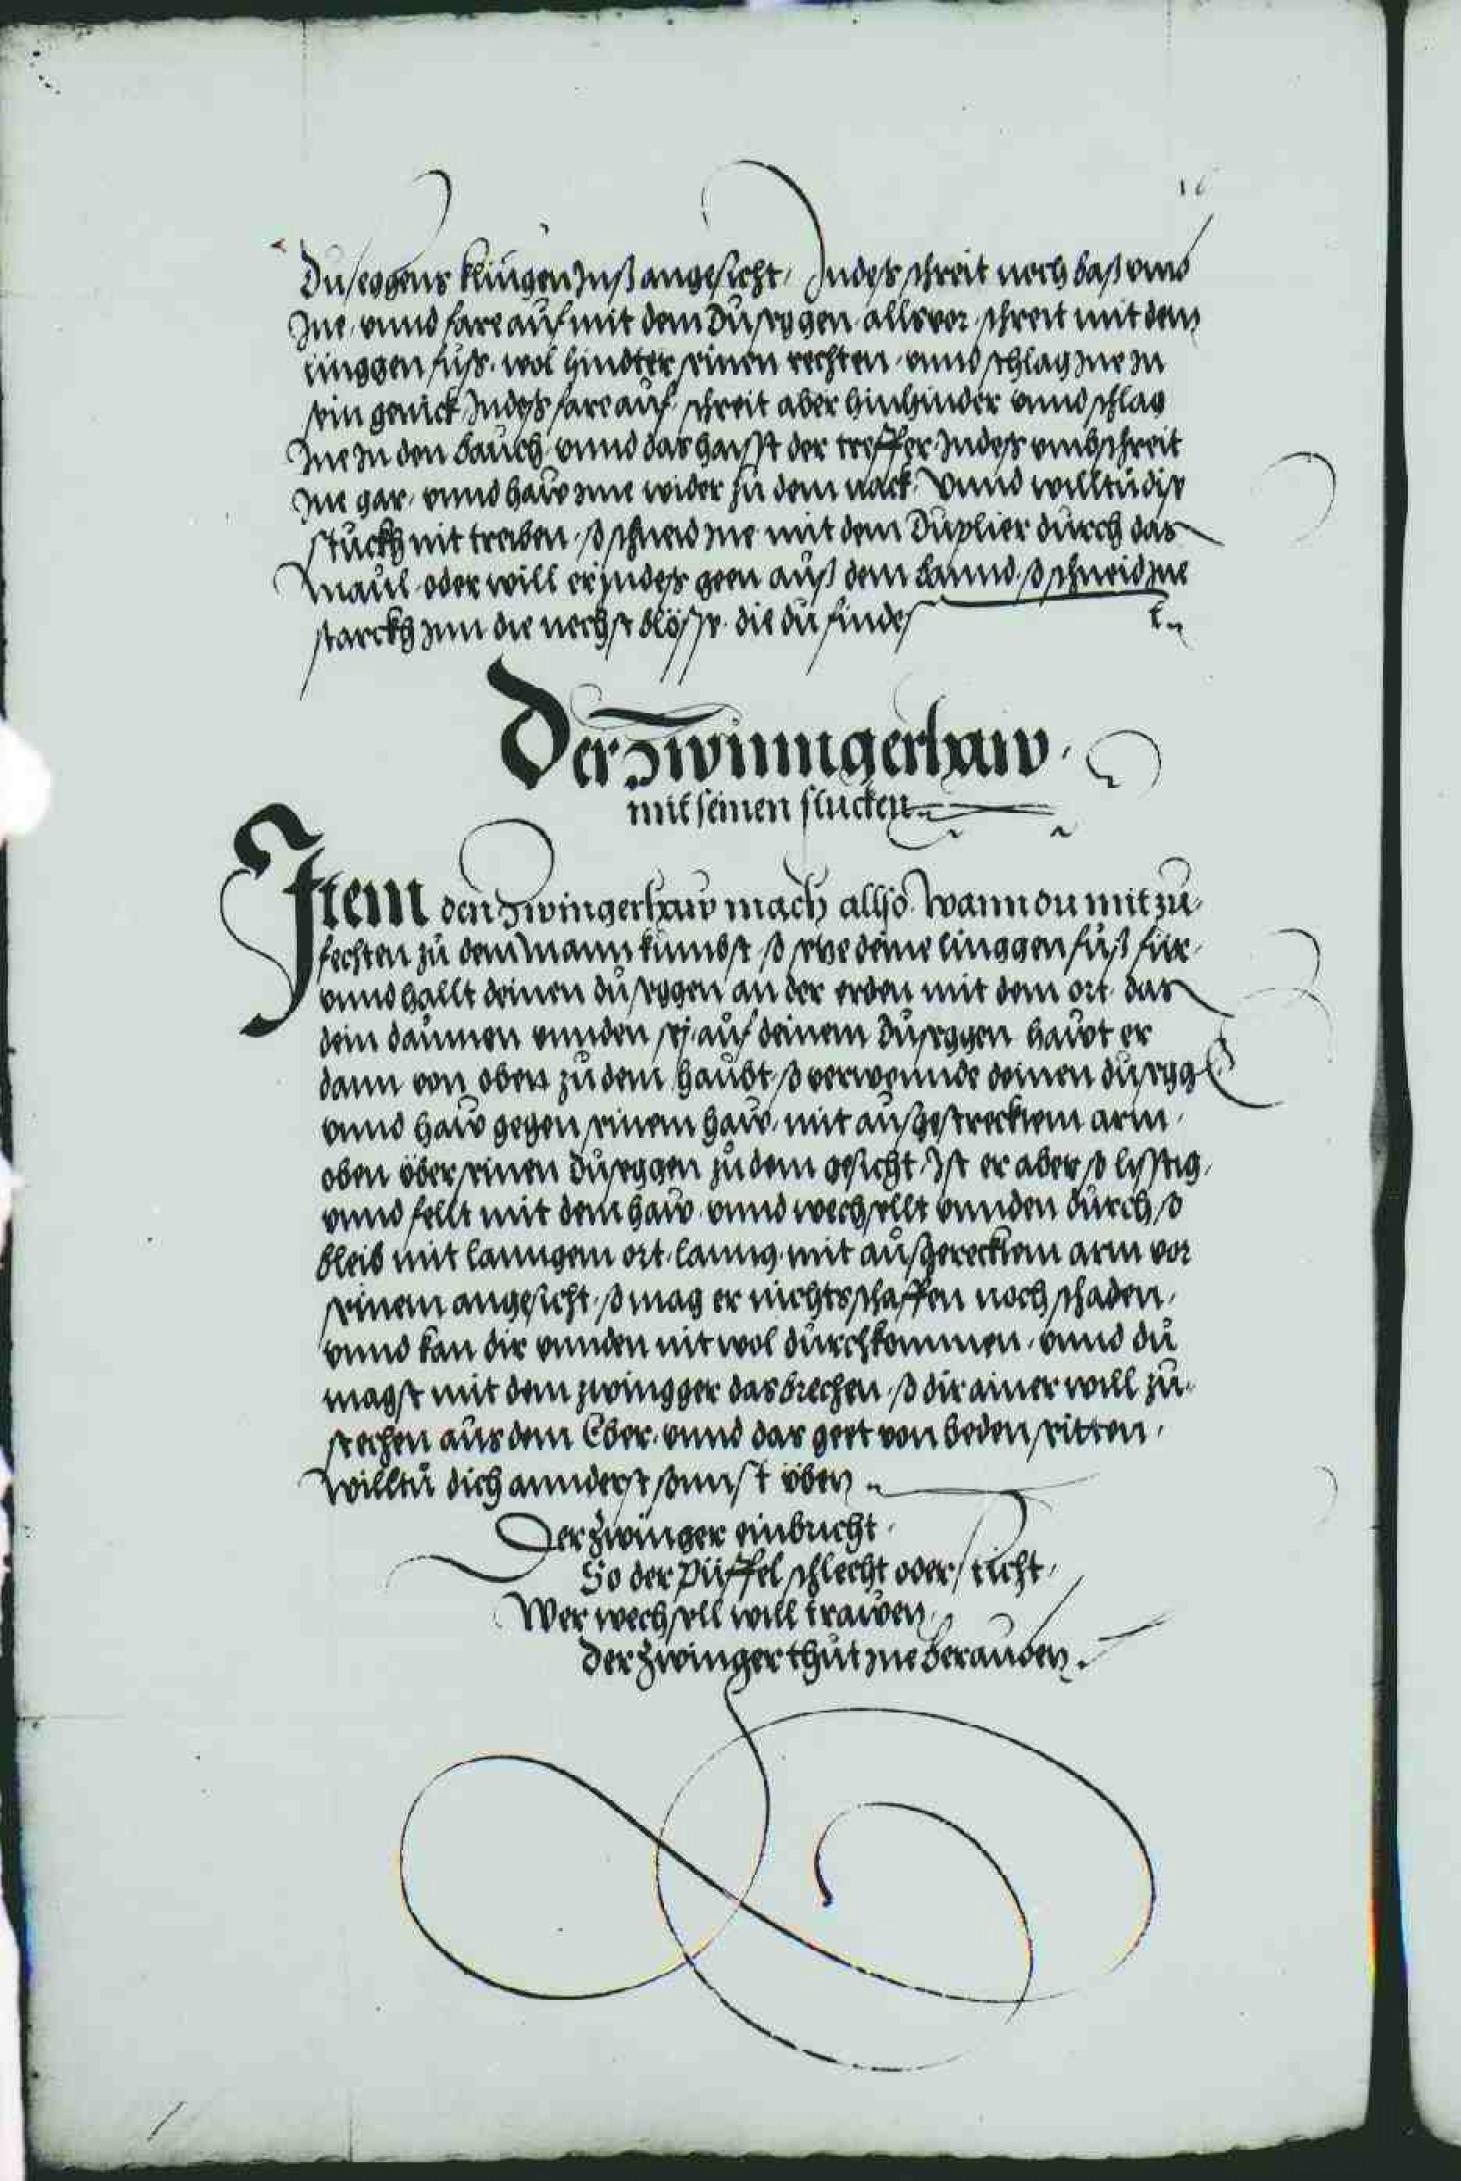 Duseggens klingen Inß angesicht, Indeß schreit noch baß vmb
Ine, vnnd fare auf mit dem Dusyggen, alls vor, schreit mit dem
linggen fuß, wol hindter seinen rechten, vnnd schlag Ine In
sein genick, Indeß fare auf, schreit aber hinhinder vnnd schlag
Ine In den bauch, vnnd das haisst der treffer, Indeß vmbschreit
Ine gar, vnnd haw Ime wider zu dem nack, Vnnd willtu dise
stuckh nit treiben, so schneid Ine mit dem Duplier durch das
Maul, oder will er Indeß geen auß dem bannd, so schneid Ine
starckh Inn die nechst blösse, die du findest
Der Zwinngerhaw,
mit seinen stucken
Item den Zwingerhaw mach allso, Wann du mit zu,
fechten zu dem Mann kumbst, so setze deine linggen fuß für,
vnnd hallt deinen dusyggen an der erden mit dem ort, das
dein daumen vnnden sej, auf deinem Duseggen, hawt er
dann von oben zu dem haubt, so verwennde deinen dusegg
vnnd haw gegen seinem haw, mit außgestrecktem arm,
oben über seinen Duseggen zu dem gesicht, Ist er aber so lysstig,
vnnd fellt mit dem haw, vnnd wechsellt vnnden durch, so
bleib mit lanngem ort, lanng, mit außgerecktem arm vor
seinem angesicht, so mag er nichts schaffen noch schaden,
vnnd kan dir vnnden nit wol durchkommen, vnnd du
magst mit dem zwingger das brechen, so dir ainer will zu,
stechen aus dem Eber, vnnd das geet von beden seitten,
willtu dich annderst sonnst üben
Der Zwinger einbricht,
So der Püffel schlecht oder sticht,
Wer wechsell will trawen,
der Zwinger thut Ine berauben.